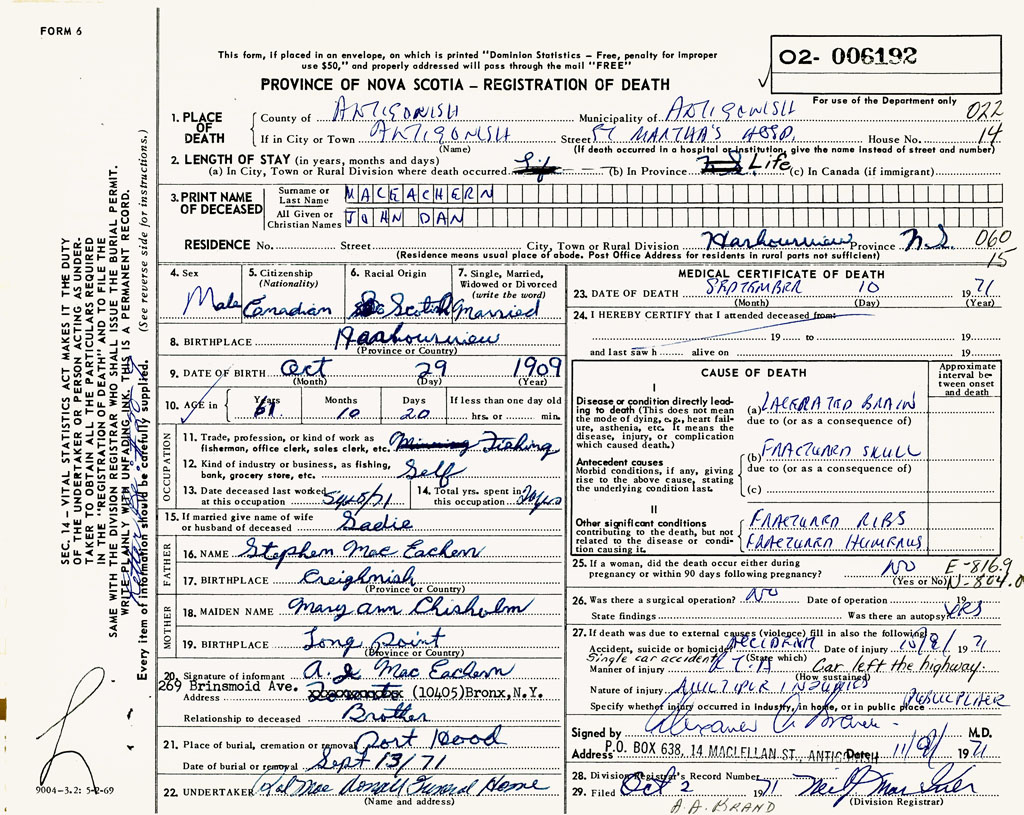 FORM 6
This form, if placed in an envelope, on which is printed "Dominion Statistics – Free, penalty for improper
use $50," and properly addressed will pass through the mail "FREE"
02- 006192
PROVINCE OF NOVA SCOTIA – REGISTRATION OF DEATH
For use of the Department only
1. PLACE OF DEATH
County of ANTIGONISH Municipality of ANTIGONISH 022
If in City or Town ANTIGONISH Street ST MARTHA'S HOSP. House No. 14
(Name) (If death occurred in a hospital or institution, give the name instead of street and number)
2. LENGTH OF STAY (in years, months and days)
(a) In City, Town or Rural Division where death occurred Life (b) In Province N.S. Life (c) In Canada (if immigrant)
3. PRINT NAME OF DECEASED
Surname or Last Name MACEACHERN
All Given or Christian Names JOHN DAN
RESIDENCE No. Street City, Town or Rural Division Harbourview Province N.S. 060
(Residence means usual place of abode. Post Office Address for residents in rural parts not sufficient) 15
4. Sex Male
5. Citizenship (Nationality) Canadian
6. Racial Origin Scotish
7. Single, Married, Widowed or Divorced (write the word) Married
8. BIRTHPLACE Harbourview
(Province or Country)
9. DATE OF BIRTH Oct 29 1909
(Month) (Day) (Year)
10. AGE in Years 61 Months 10 Days 20 If less than one day old hrs. or min.
OCCUPATION
11. Trade, profession, or kind of work as fisherman, office clerk, sales clerk, etc. Mining Fishing
12. Kind of industry or business, as fishing, bank, grocery store, etc. Self
13. Date deceased last worked at this occupation
14. Total yrs. spent in this occupation
15. If married give name of wife or husband of deceased Sadie
FATHER
16. NAME Stephen Mac Eachern
17. BIRTHPLACE Creighnish
(Province or Country)
MOTHER
18. MAIDEN NAME Mary Ann Chisholm
19. BIRTHPLACE Long Point
(Province or Country)
20. Signature of informant A. J. Mac Eachern
269 Brinsmoid Ave.
Address (10405) Bronx, N.Y.
Relationship to deceased Brother
21. Place of burial, cremation or removal Port Hood
Date of burial or removal Sept 13/71
22. UNDERTAKER Funeral Home
(Name and address)
MEDICAL CERTIFICATE OF DEATH
23. DATE OF DEATH SEPTEMBER 10 1971
(Month) (Day) (Year)
24. I HEREBY CERTIFY that I attended deceased from:
19 to 19
and last saw h alive on 19
CAUSE OF DEATH
Approximate interval between onset and death
I
Disease or condition directly leading to death (This does not mean the mode of dying, e.g., heart failure, asthenia, etc. It means the disease, injury, or complication which caused death.)
(a) LACERATED BRAIN
due to (or as a consequence of)
Antecedent causes
Morbid conditions, if any, giving rise to the above cause, stating the underlying condition last.
(b) FRACTURED SKULL
due to (or as a consequence of)
(c)
II
Other significant conditions contributing to the death, but not related to the disease or condition causing it.
FRACTURED RIBS
FRACTURED HUMERUS
25. If a woman, did the death occur either during pregnancy or within 90 days following pregnancy? NO
(Yes or No)
E-816.9
N-804.0
26. Was there a surgical operation? NO Date of operation 19
State findings Was there an autopsy YES
27. If death was due to external causes (violence) fill in also the following
Accident, suicide or homicide ACCIDENT Date of injury 1971
(State which)
Single car accident
Manner of injury Car left the highway.
(How sustained)
Nature of injury MULTIPLE INJURIES
Specify whether injury occurred in industry, in home, or in public place
Signed by M.D.
Address P.O. BOX 638, 14 MACLELLAN ST., ANTIGONISH Date 11/9/ 1971
28. Division Registrar's Record Number
29. Filed Oct 2 1971
(Division Registrar)
A.A. BRAND
SEC. 14 – VITAL STATISTICS ACT MAKES IT THE DUTY
OF THE UNDERTAKER OR PERSON ACTING AS UNDER-
TAKER TO OBTAIN ALL THE PARTICULARS REQUIRED
IN THE "REGISTRATION OF DEATH" AND TO FILE THE
SAME WITH THE DIVISION REGISTRAR WHO SHALL ISSUE THE BURIAL PERMIT.
WRITE PLAINLY WITH UNFADING INK. THIS IS A PERMANENT RECORD.
Every item of information should be carefully supplied. (See reverse side for instructions.)
9004-3.2: 5-2-69